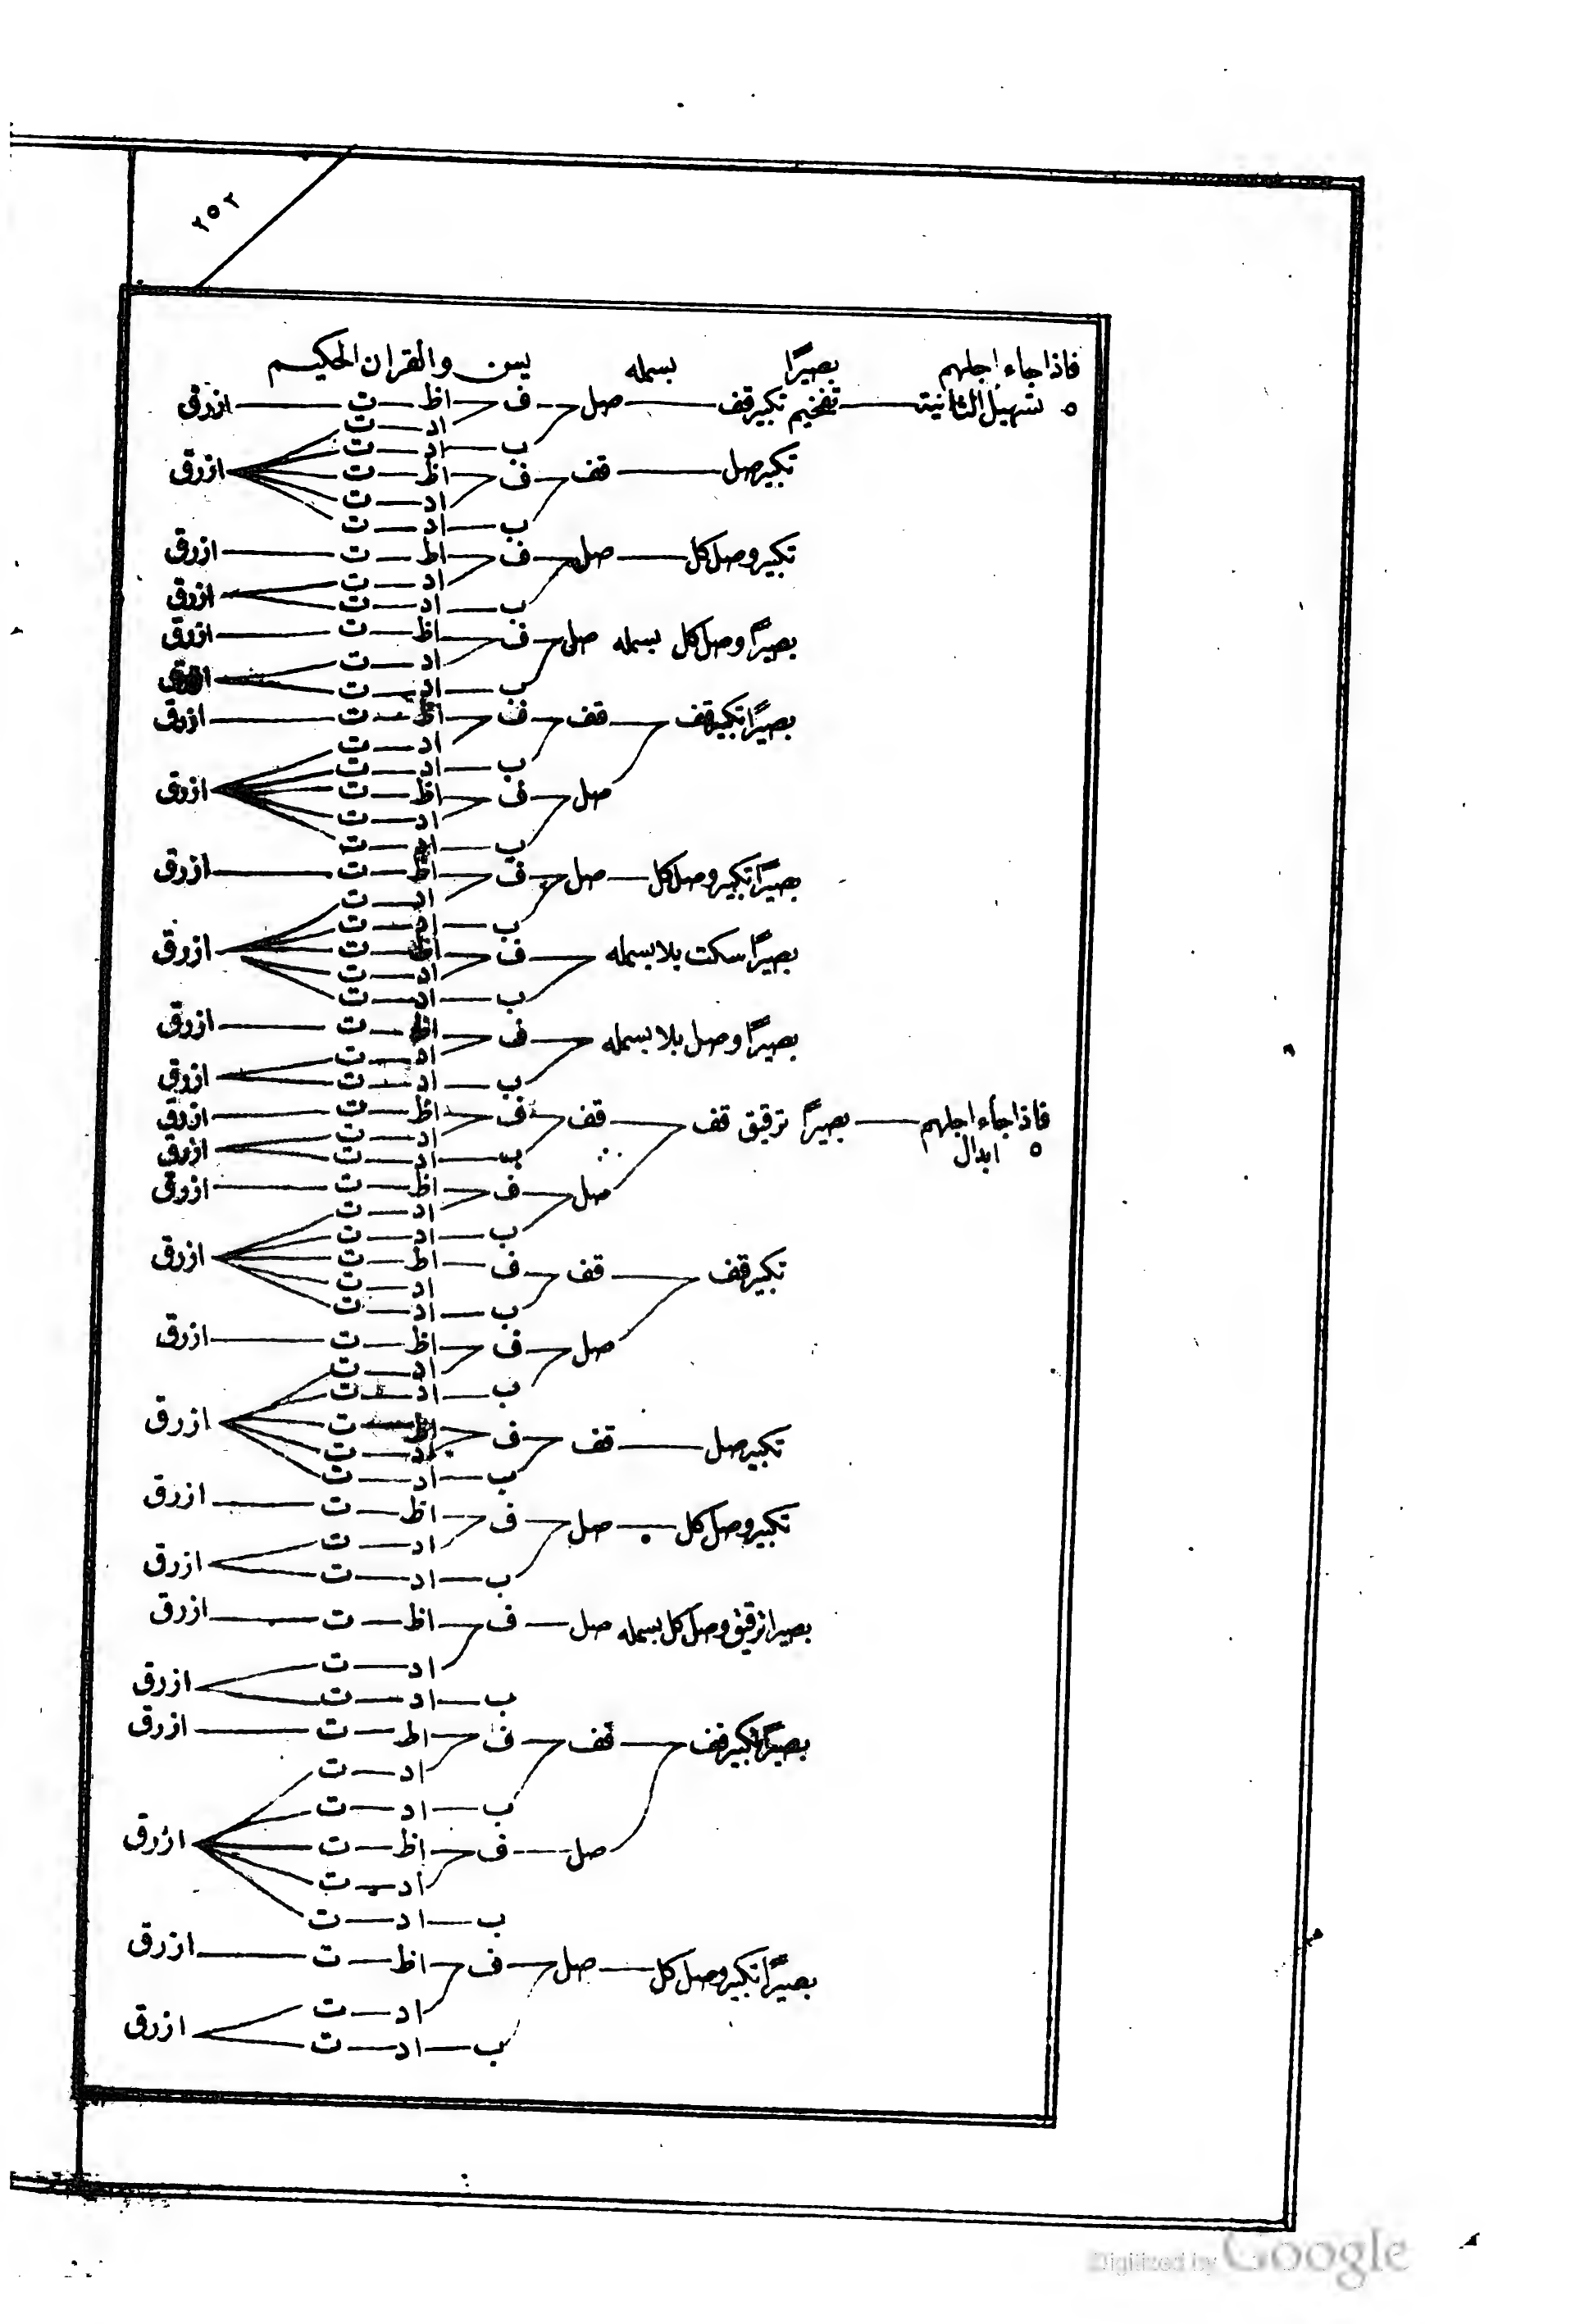 ٢٥٢
فاذا جاء اجلهم بصيرًا بسمله يس والقران الحكيم
٥ تسهيل الثانية تفخيم تكبير قف صل ف اظ ت ازرق
اد ت
ب اد ت
تكبير صل قف ف اظ ت ازرق
اد ت
ب اد ت
تكبير وصل كل صل ف اظ ت ازرق
اد ت ازرق
ب اد ت
بصيرًا وصل كل بسمله صل ف اظ ت ازرق
اد ت ازرق
ب اد ت
بصيرًا تكبير قف قف ف اظ ت ازرق
اد ت
ب اد ت
صل ف اظ ت ازرق
اد ت
ب اد ت
بصيرًا تكبير وصل كل صل ف اظ ت ازرق
اد ت
ب اد ت
بصيرًا سكت بلا بسمله ف اظ ت ازرق
اد ت
ب اد ت
بصيرًا وصل بلا بسمله ف اظ ت ازرق
اد ت ازرق
ب اد ت
فاذا جاء اجلهم بصيرًا ترقيق قف قف ف اظ ت ازرق
٥ ابدال اد ت ازرق
ب اد ت
صل ف اظ ت ازرق
اد ت
ب اد ت
تكبير قف قف ف اظ ت ازرق
اد ت
ب اد ت
صل ف اظ ت ازرق
اد ت
ب اد ت
تكبير صل قف ف اظ ت ازرق
اد ت
ب اد ت
تكبير وصل كل صل ف اظ ت ازرق
اد ت ازرق
ب اد ت
بصيرا ترقيق وصل كل بسمله صل ف اظ ت ازرق
اد ت ازرق
ب اد ت
بصيرًا تكبير قف قف ف اظ ت ازرق
اد ت
ب اد ت
صل ف اظ ت ازرق
اد ت
ب اد ت
بصيرًا تكبير وصل كل صل ف اظ ت ازرق
اد ت ازرق
ب اد ت
Digitized by Google